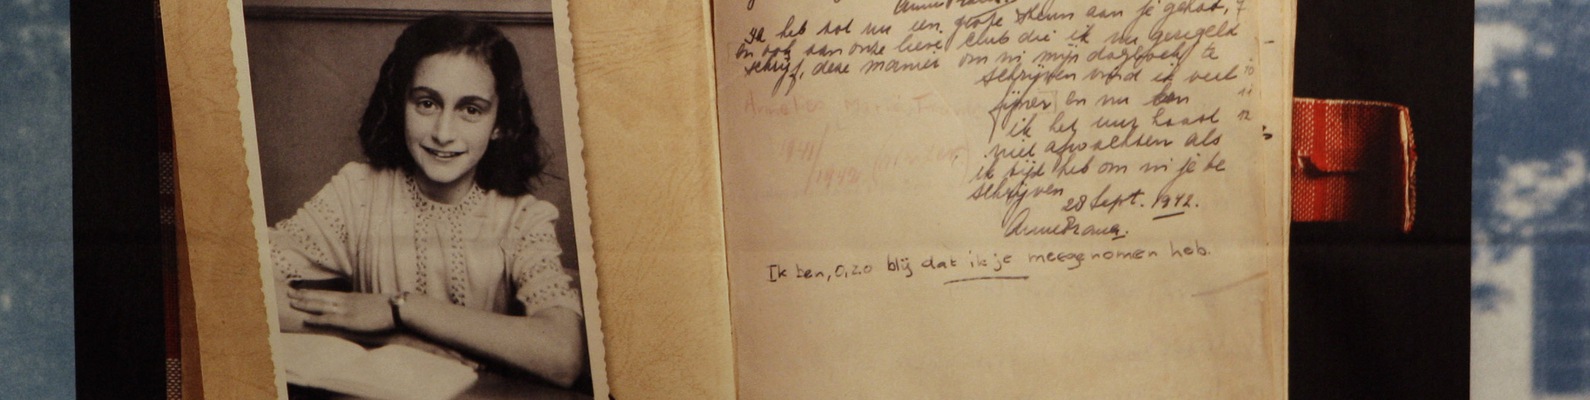 Ik heb tot nu een grote steun aan je gehad,
en ook aan onze lieve club die ik nu geregeld
schrijf, deze manier om in mijn dagboek te
schrijven vind ik veel
fijner en nu kan
ik het uur haast
niet afwachten als
ik tijd heb om in je te
schrijven
28 Sept. 1942.
Anne Frank.
Ik ben, O, zo blij dat ik je meegenomen heb.